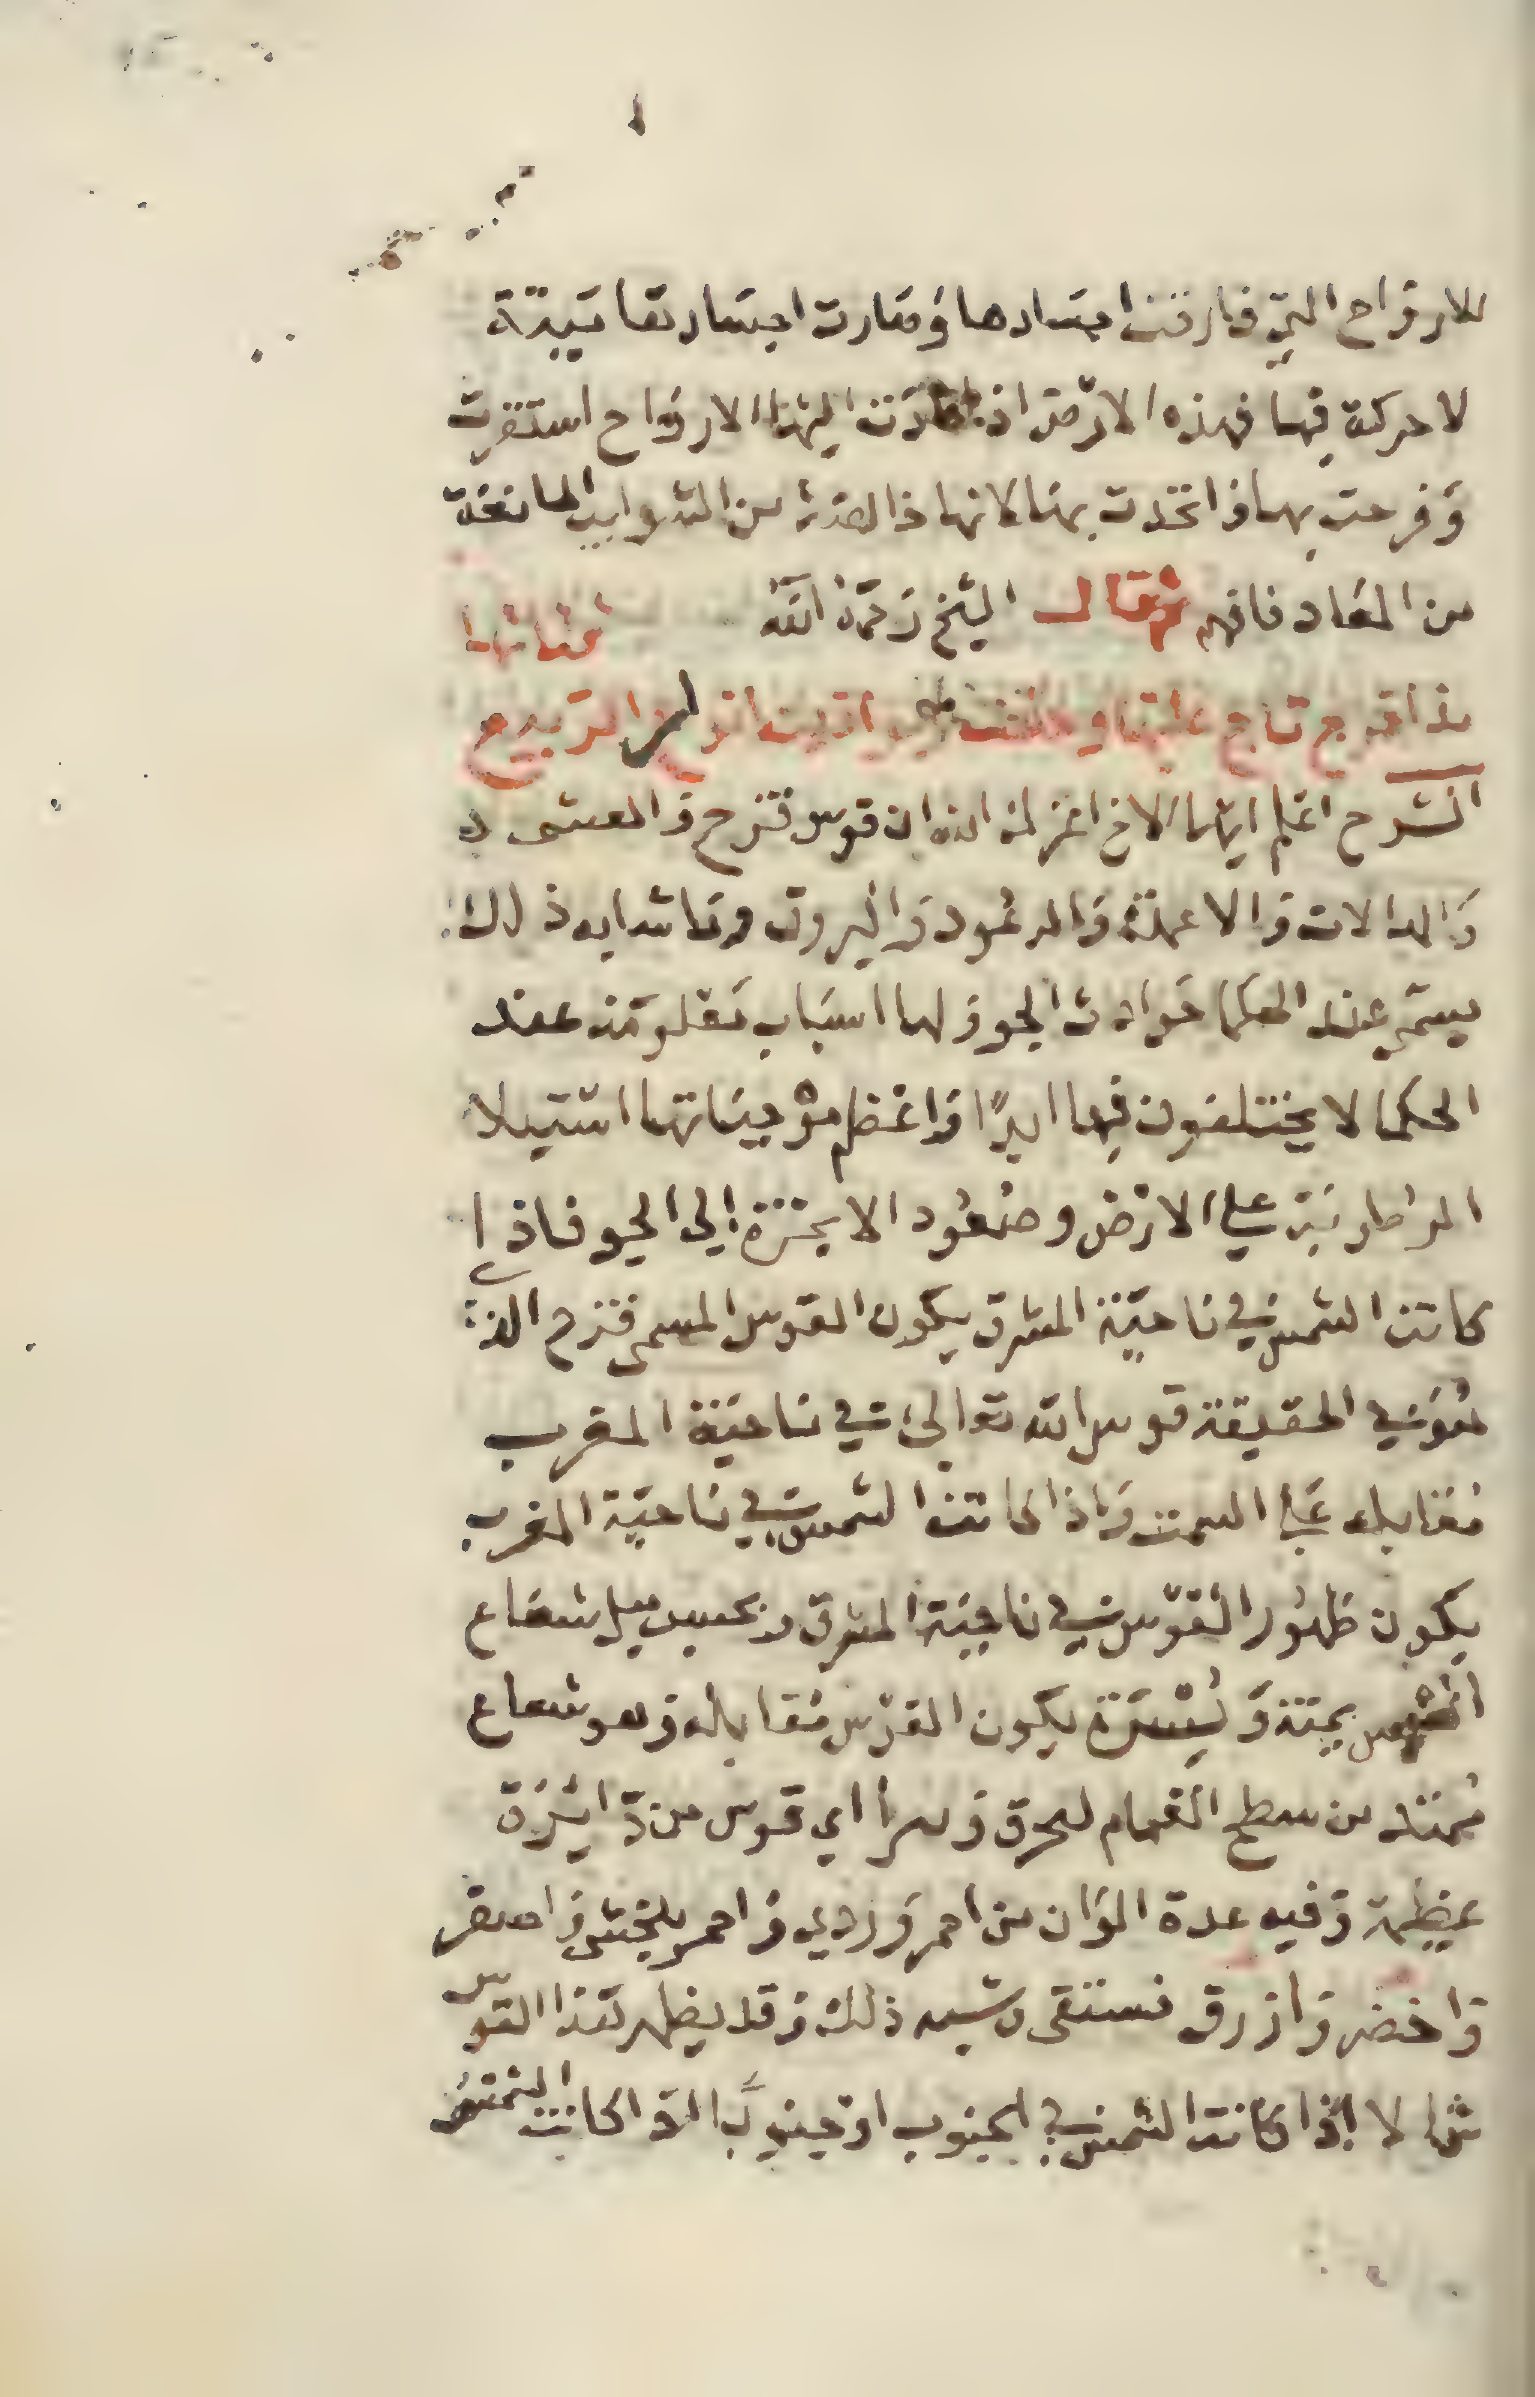 للارواح التي فارقت اجسادها وصارت اجسادها ميتة
لا حركة فيها فهذه الارض اذا عادت اليها الارواح استقرت
وفرحت بها واتحدت بها لانها خالصة من الشوايب المانعة
من المعاد فافهم ثم قال الشيخ رحمه الله
تاج
الشرح اعلم ايها الاخ اعزك الله ان قوس قزح و
والهالات والاعمدة والرعود والبروق وما شابه ذلك
يسمى عند الحكما حوادث الجو ولها اسباب معلومة عند
الحكما لا يختلفون فيها ابدا واعظم موجباتها استيلا
الرطوبة على الارض وصعود الابخرة الى الجو فاذا
كانت الشمس في ناحية المشرق يكون القوس المسمى قزح الذي
هو في الحقيقة قوس الله تعالى في ناحية المغرب
مقابله على السمت واذا كانت الشمس في ناحية المغرب
يكون ظهور القوس في ناحية المشرق وبحسب ميل شعاع
الشمس يمنة ويسرة يكون القوس مقابله وهو شعاع
ممتد من سطح الغمام اي قوس من دايرة
عظيمة وفيه عدة الوان من احمر وردي واحمر بلخشي واصفر
واخضر وازرق فستقى وشبه ذلك وقد يظهر هذا القوس
شمالا اذا كانت الشمس في الجنوب او جنوبا اذا كانت الشمس